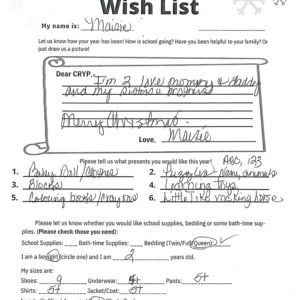 Wish List
My name is: Maisie
Let us know how your year has been! How is school going? Have you been helpful to your family? Or
just draw us a picture!
Dear CRYP,
I'm 2 love mommy & daddy
and my sisters & brothers
Merry Christmas
Love, Maisie
Please tell us what presents you would like this year! ABC, 123
1. Baby Doll/Clothes 2. Puzzles
3. Blocks 4. Learning toys
5. Colouring books/Crayons 6. Little Tike
Please let us know whether you would like school supplies, bedding or some bath-time sup-
plies. (Please check those you need):
School Supplies: Bath-time Supplies: Bedding (Twin/Full/Queen)
I am a boy/girl (circle one) and I am 2 years old.
My sizes are:
Shoes: 9 Underwear: 5t Pants: 5t
Shirts: 5t Jacket/Coat: 5t